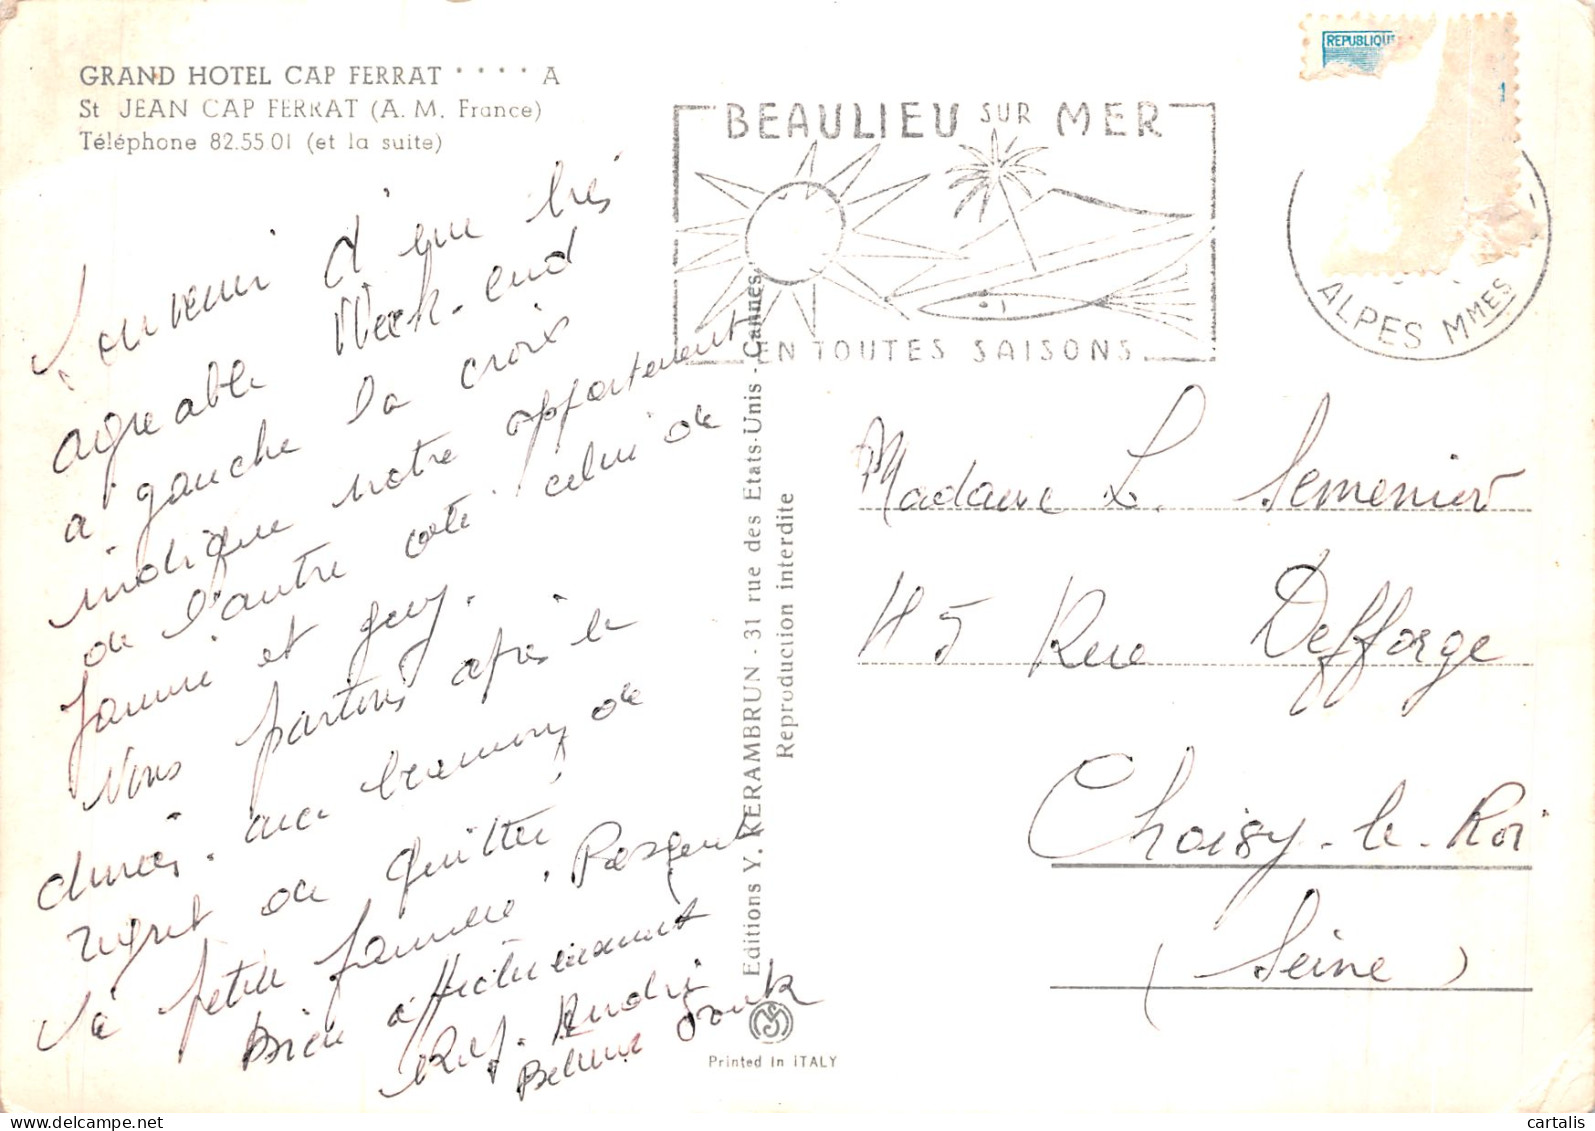 GRAND HOTEL CAP FERRAT * * * * A
St JEAN CAP FERRAT (A. M. France)
Téléphone 82.55 01 (et la suite)
Souvenir d'un très
agréable Week-end
a gauche la croix
indique notre appartement
de l'autre coté celui de
Jannie et guy.
Nous partons après le
avec de
regret de quitter
la petite famille
Bien affectueusement
André
BEAULIEU SUR MER
EN TOUTES SAISONS
REPUBLIQUE
1
ALPES MMES
Editions Y. KERAMBRUN - 31 rue des Etats-Unis - Cannes
Reproduction interdite
Printed in ITALY
Madame L. Semenier
45 Rue Defforge
Choisy-le-Roi
(Seine)
cartalis